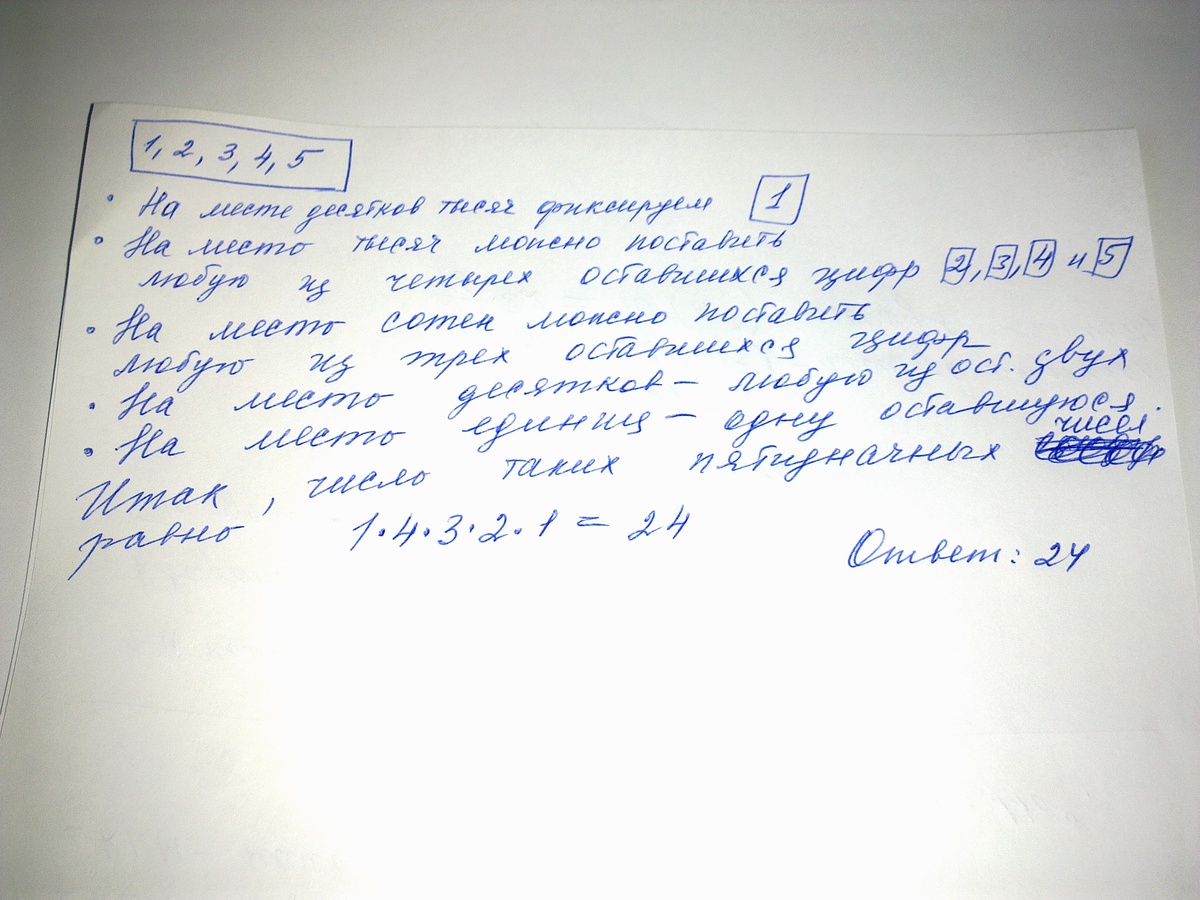 1, 2, 3, 4, 5
· На месте десятков тысяч фиксируем 1
· На место тысяч можно поставить
любую из четырех оставшихся цифр 2, 3, 4 и 5
· На место сотен можно поставить
любую из трех оставшихся цифр
· На место десятков – любую из ост. двух
· На место единиц – одну оставшуюся.
Итак, число таких пятизначных чисел
равно 1·4·3·2·1 = 24
Ответ: 24